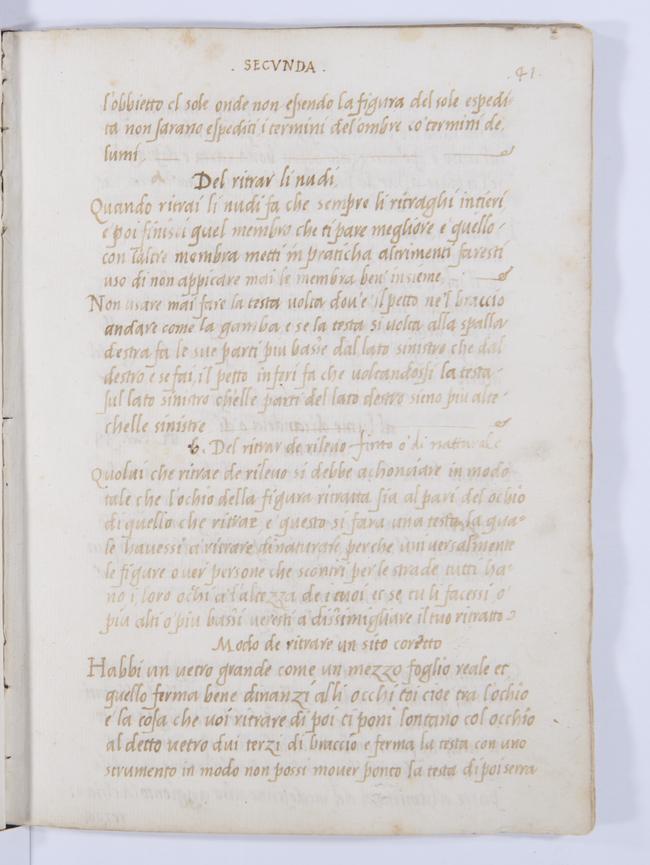 . SECVNDA .
. 41 .
l'obbietto el sole onde non essendo la figura del sole espedi-
ta non sarano espediti i termini del'ombre co' termini de
lumi
Del ritrar li nudi
Quando ritrai li nudi fa che sempre li ritraghi intieri
e poi finisci quel membro che ti pare megliore e quello
con l'altre membra metti in praticha altrimenti faresti
uso di non appicare mai le membra ben' insieme
Non usare mai fare la testa volta dov'è il petto ne'l braccio
andare come la gamba e se la testa si volta alla spalla
destra fa le sue parti piu basse dal lato sinistro che dal
destro e se fai il petto infori fa che voltandossi la testa
sul lato sinistro chelle parti del lato destro sieno piu alte
chelle sinistre
b. Del ritrar de rilevo finto o' di naturale
Quolui che ritrae de rilevo si debbe achonciare in modo
tale che l'ochio della figura ritratta sia al pari del ochio
di quello che ritrae e questo si fara una testa la qua-
le havessi a ritrare di naturale perche universalmente
le figure over persone che scontri per le strade tutti ha-
no i loro ochi a l'altezza de i tuoi et se tu li facessi o'
piu alti o piu bassi veresti a dissimigliare il tuo ritratto
Modo de ritrare un sito coretto
Habbi un vetro grande come un mezzo foglio reale et
quello ferma bene dinanzi alli occhi toi cioe tra l'ochio
e la cosa che voi ritrare di poi ti poni lontano col occhio
al detto vetro dui terzi di braccio e ferma la testa con uno
strumento in modo non possi mover ponto la testa di poi serra